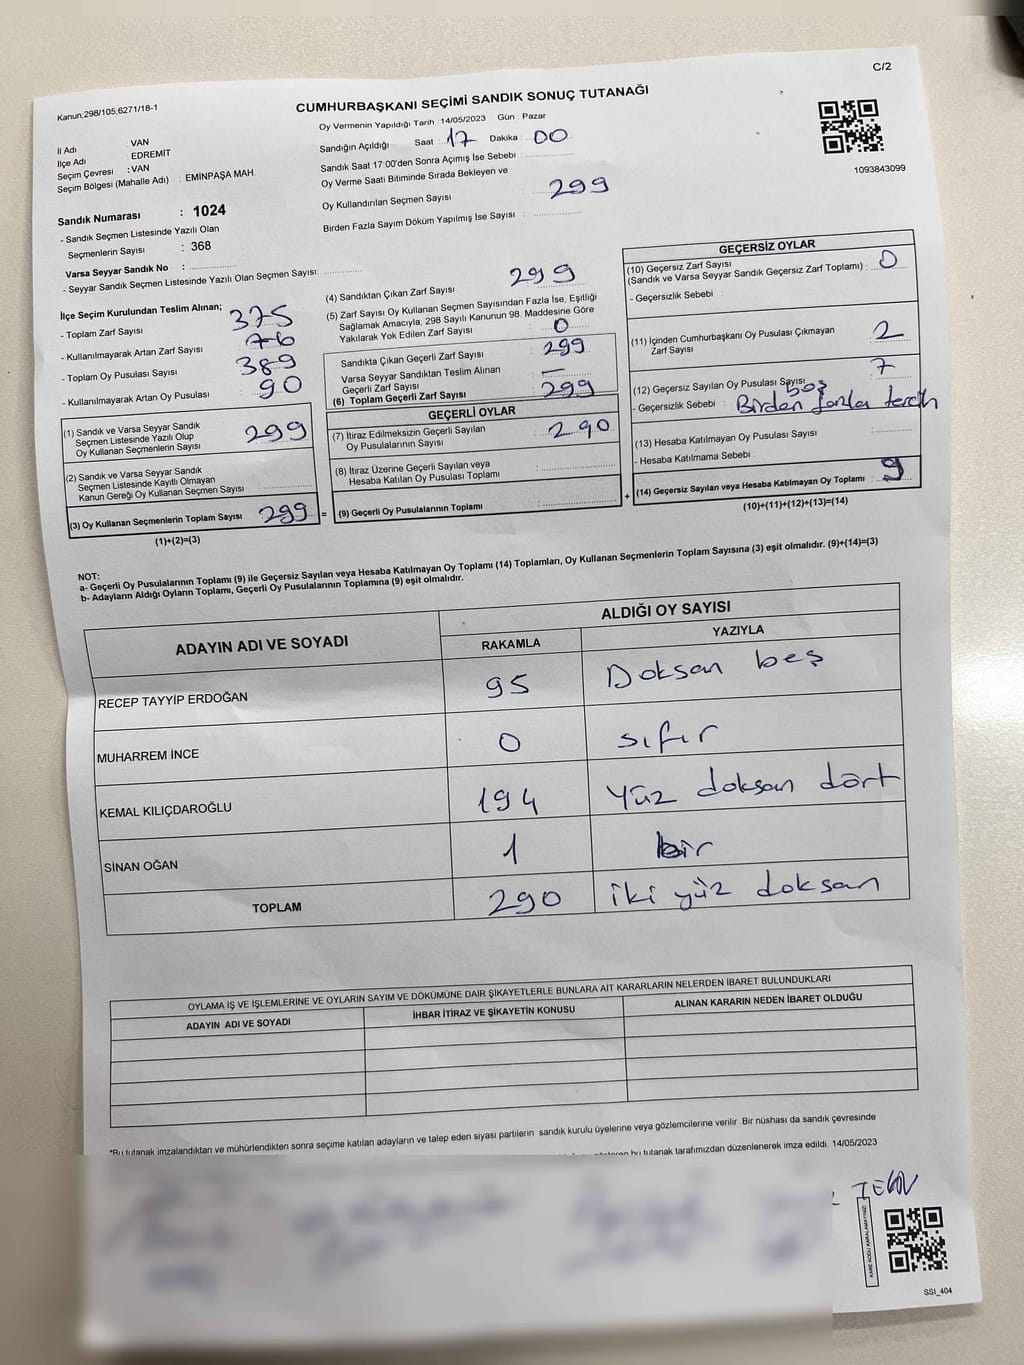 C/2
Kanun:298/105,6271/18-1
CUMHURBAŞKANI SEÇİMİ SANDIK SONUÇ TUTANAĞI
Oy Vermenin Yapıldığı Tarih : 14/05/2023 Gün : Pazar
İl Adı : VAN
İlçe Adı : EDREMIT
Seçim Çevresi : VAN
Seçim Bölgesi (Mahalle Adı) : EMİNPAŞA MAH.
Sandık Numarası : 1024
- Sandık Seçmen Listesinde Yazılı Olan
Seçmenlerin Sayısı : 368
Varsa Seyyar Sandık No :
- Seyyar Sandık Seçmen Listesinde Yazılı Olan Seçmen Sayısı:
Sandığın Açıldığı Saat : 17 Dakika : 00
Sandık Saat 17:00'den Sonra Açımış İse Sebebi :
Oy Verme Saati Bitiminde Sırada Bekleyen ve
Oy Kullandırılan Seçmen Sayısı : 299
Birden Fazla Sayım Döküm Yapılmış İse Sayısı :
1093843099
İlçe Seçim Kurulundan Teslim Alınan;
- Toplam Zarf Sayısı 375
- Kullanılmayarak Artan Zarf Sayısı 76
- Toplam Oy Pusulası Sayısı 389
- Kullanılmayarak Artan Oy Pusulası : 90
(1) Sandık ve Varsa Seyyar Sandık
Seçmen Listesinde Yazılı Olup
Oy Kullanan Seçmenlerin Sayısı 299
(2) Sandık ve Varsa Seyyar Sandık
Seçmen Listesinde Kayıtlı Olmayan
Kanun Gereği Oy Kullanan Seçmen Sayısı
(3) Oy Kullanan Seçmenlerin Toplam Sayısı 299 =
(1)+(2)=(3)
(4) Sandıktan Çıkan Zarf Sayısı 299
(5) Zarf Sayısı Oy Kullanan Seçmen Sayısından Fazla İse, Eşitliği
Sağlamak Amacıyla, 298 Sayılı Kanunun 98. Maddesine Göre
Yakılarak Yok Edilen Zarf Sayısı : 0
Sandıkta Çıkan Geçerli Zarf Sayısı : 299
Varsa Seyyar Sandıktan Teslim Alınan
Geçerli Zarf Sayısı : –
(6) Toplam Geçerli Zarf Sayısı : 299
GEÇERLİ OYLAR
(7) İtiraz Edilmeksizin Geçerli Sayılan
Oy Pusulalarının Sayısı : 290
(8) İtiraz Üzerine Geçerli Sayılan veya
Hesaba Katılan Oy Pusulası Toplamı :
(9) Geçerli Oy Pusulalarının Toplamı : +
GEÇERSİZ OYLAR
(10) Geçersiz Zarf Sayısı
(Sandık ve Varsa Seyyar Sandık Geçersiz Zarf Toplamı) : 0
- Geçersizlik Sebebi :
(11) İçinden Cumhurbaşkanı Oy Pusulası Çıkmayan
Zarf Sayısı 2
(12) Geçersiz Sayılan Oy Pusulası Sayısı 7
boş
- Geçersizlik Sebebi : Birden fazla tercih
(13) Hesaba Katılmayan Oy Pusulası Sayısı
- Hesaba Katılmama Sebebi :
(14) Geçersiz Sayılan veya Hesaba Katılmayan Oy Toplamı : 9
(10)+(11)+(12)+(13)=(14)
NOT:
a- Geçerli Oy Pusulalarının Toplamı (9) ile Geçersiz Sayılan veya Hesaba Katılmayan Oy Toplamı (14) Toplamları, Oy Kullanan Seçmenlerin Toplam Sayısına (3) eşit olmalıdır. (9)+(14)=(3)
b- Adayların Aldığı Oyların Toplamı, Geçerli Oy Pusulalarının Toplamına (9) eşit olmalıdır.
ADAYIN ADI VE SOYADI ALDIĞI OY SAYISI
RAKAMLA YAZIYLA
RECEP TAYYİP ERDOĞAN 95 Doksan beş
MUHARREM İNCE 0 sıfır
KEMAL KILIÇDAROĞLU 194 Yüz doksan dört
SİNAN OĞAN 1 bir
TOPLAM 290 iki yüz doksan
OYLAMA İŞ VE İŞLEMLERİNE VE OYLARIN SAYIM VE DÖKÜMÜNE DAİR ŞİKAYETLERLE BUNLARA AİT KARARLARIN NELERDEN İBARET BULUNDUKLARI
ADAYIN ADI VE SOYADI İHBAR İTİRAZ VE ŞİKAYETİN KONUSU ALINAN KARARIN NEDEN İBARET OLDUĞU
*Bu tutanak imzalandıktan ve mühürlendikten sonra seçime katılan adayların ve talep eden siyasi partilerin sandık kurulu üyelerine veya gözlemcilerine verilir. Bir nüshası da sandık çevresinde
bu tutanak tarafımızdan düzenlenerek imza edildi. 14/05/2023
KARE KODU KARALAMAYINIZ!
SSI_404